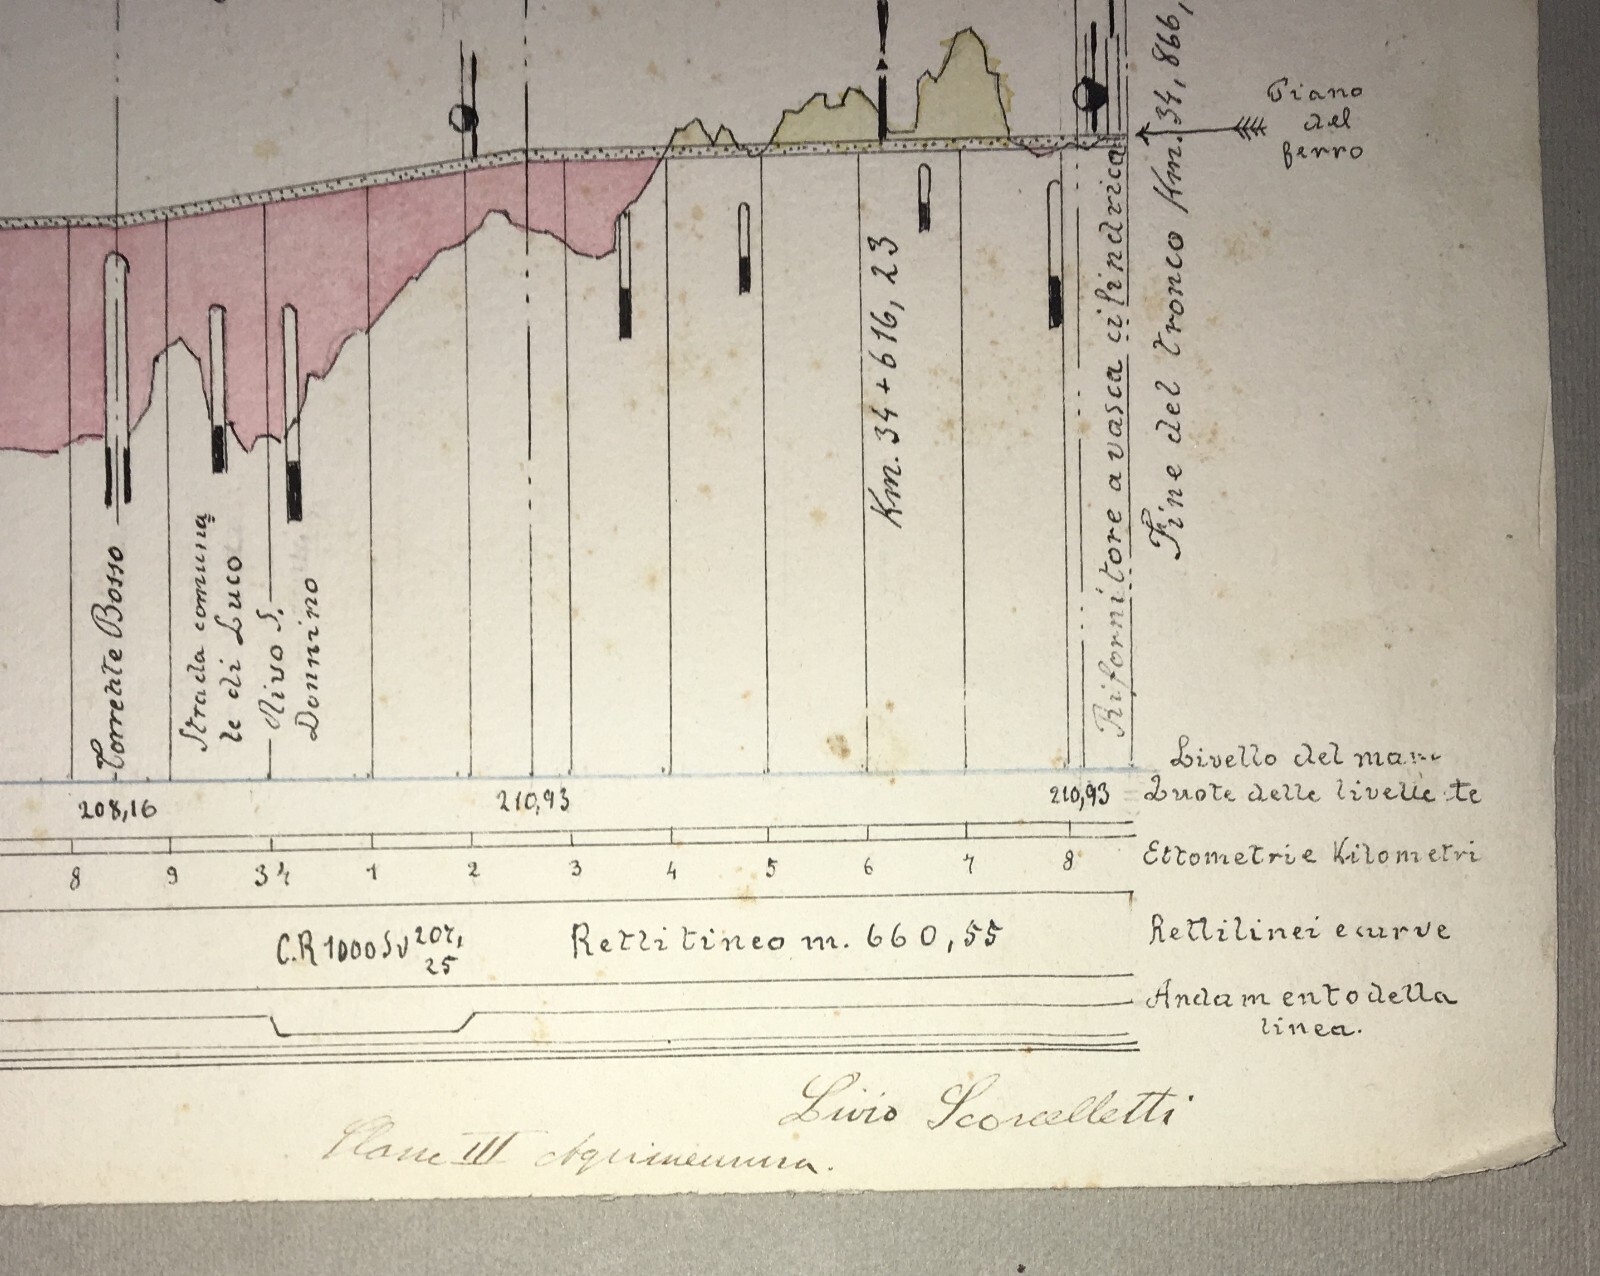 Piano
del
ferro
Fine del tronco Km. 34,866,
Rifornitore a vasca cilindrica
Km. 34+616,23
Torrente Bosso
Strada comuna
le di Luco
Rivo S.
Donnino
Livello del mare
208,16 210,93 210,93 Quote delle livellette
8 9 34 1 2 3 4 5 6 7 8 Ettometri e Kilometri
C.R 1000 Sv 207,
25
Rettilineo m. 660,55 Rettilinei e curve
Andamento della
linea.
Livio Scorcelletti
III Agrimensura.